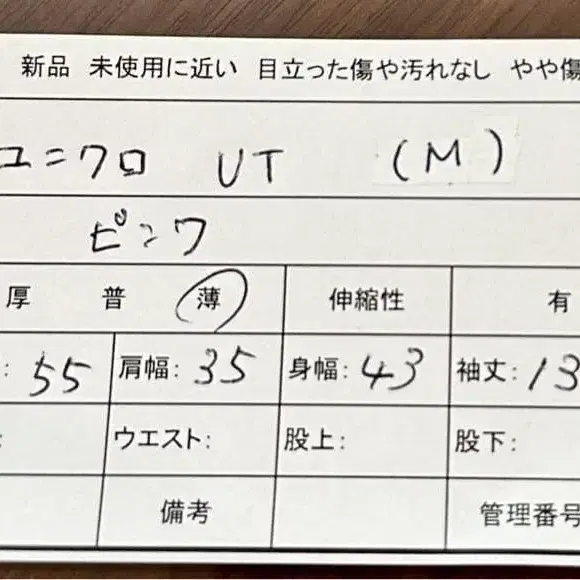 新品 未使用に近い 目立った傷や汚れなし やや傷
ユニクロ UT (M)
ピンク
厚 普 薄 伸縮性 有
: 55 肩幅: 35 身幅: 43 袖丈: 13
: ウエスト: 股上: 股下:
備考 管理番号